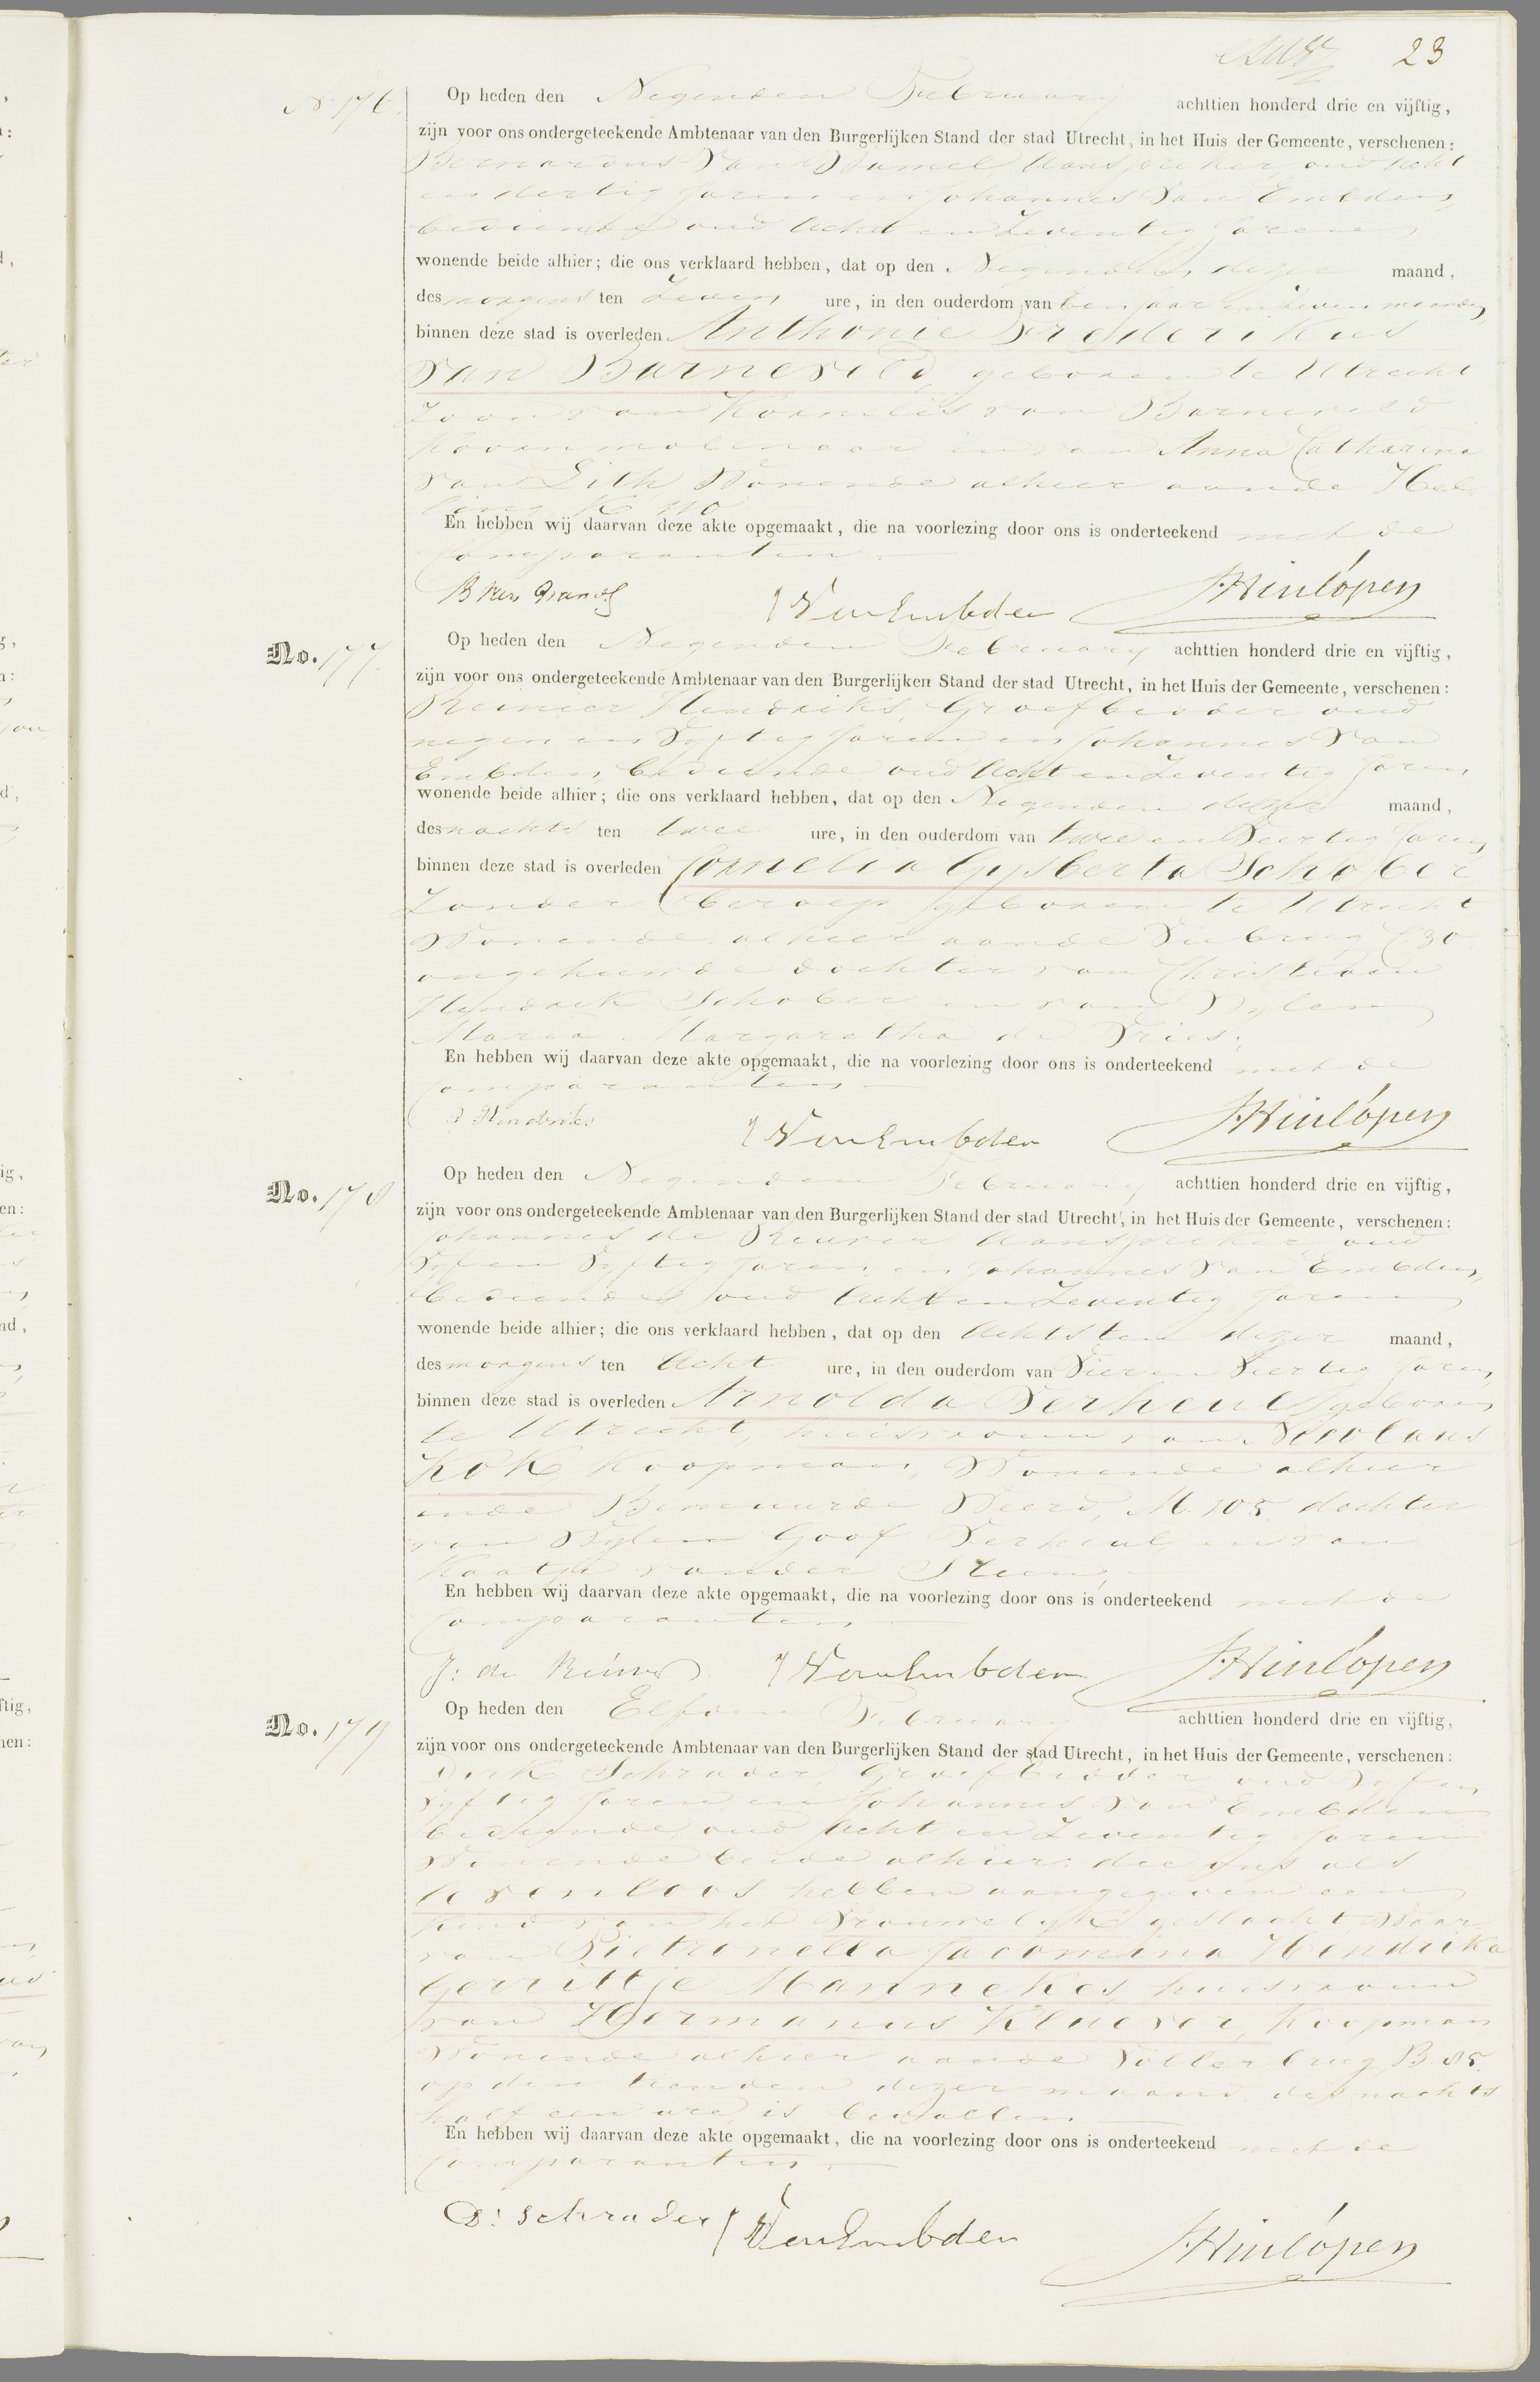 23
N 176.
Op heden den Negenden February achttien honderd drie en vijftig,
zijn voor ons ondergeteekende Ambtenaar van den Burgerlijken Stand der stad Utrecht, in het Huis der Gemeente, verschenen:
Bernardus van Aanspreker, oud Acht
en dertig Jaren, en Johannes van Embden,
bediende oud Acht en Zeventig Jaren,
wonende beide alhier; die ons verklaard hebben, dat op den Negenden dezer maand,
des morgens ten Zeven ure, in den ouderdom van Een Jaar en Zeven maanden
binnen deze stad is overleden Anthonie Frederikus
van Barneveld, geboren te Utrecht
Zoon van Kornelis van Barneveld
Koornmolenaar en van Anna Catharina
van Lith Wonende alhier aan de
En hebben wij daarvan deze akte opgemaakt, die na voorlezing door ons is onderteekend met de
Comparanten
J VanEmbden JHinlópen
No. 177.
Op heden den Negenden February achttien honderd drie en vijftig,
zijn voor ons ondergeteekende Ambtenaar van den Burgerlijken Stand der stad Utrecht, in het Huis der Gemeente, verschenen:
Reinier Hendriks, Groefbidder oud
negen en Vyftig Jaren, en Johannes van
Embden, bediende oud Acht en Zeventig Jaren,
wonende beide alhier; die ons verklaard hebben, dat op den Negenden dezer maand,
des nachts ten twee ure, in den ouderdom van twee en Veertig Jaren
binnen deze stad is overleden Cornelia Gysberta Schober
Zonder beroep geboren te Utrecht
Wonende alhier aan de Viebrug C 30
ongehuwde dochter van Christiaan
Hendrik Schober en van Wylen
Maria Margaretha de Vries.
En hebben wij daarvan deze akte opgemaakt, die na voorlezing door ons is onderteekend met de
Comparanten
R Hendriks J VanEmbden JHinlópen
No. 178
Op heden den Negenden February achttien honderd drie en vijftig,
zijn voor ons ondergeteekende Ambtenaar van den Burgerlijken Stand der stad Utrecht, in het Huis der Gemeente, verschenen:
Johannes de Reuver Aanspreker oud
Vyf en Vyftig Jaren, en Johannes van Embden,
bediende oud Acht en Zeventig Jaren
wonende beide alhier; die ons verklaard hebben, dat op den Achtsten dezer maand,
des morgens ten Acht ure, in den ouderdom van Vier en Veertig Jaren
binnen deze stad is overleden Arnolda Verheul geboren
te Utrecht, huisvrouw van Nicolaas
Kok Koopman, Wonende alhier
in de Weerd, M. 105 dochter
van Wylen Goof Verheul en van
Kaatje van der Steen,
En hebben wij daarvan deze akte opgemaakt, die na voorlezing door ons is onderteekend met de
Comparanten
J: de Reuver J VanEmbden JHinlópen
No. 179
Op heden den Elfden February achttien honderd drie en vijftig,
zijn voor ons ondergeteekende Ambtenaar van den Burgerlijken Stand der stad Utrecht, in het Huis der Gemeente, verschenen:
Dirk Schrader, Groefbidder oud Vyf en
Vyftig Jaren, en Johannes van Embden
bediende oud Acht en Zeventig Jaren
Wonende beide alhier: die ons als
levenloos hebben aangegeven een
kind van het Vrouwelyk geslacht Waar
van Pietronella Jacomina Hendrika
Gerritje Mannekes, huisvrouw
van Hermanus Klaever, Koopman
Wonende alhier aan de Vollersbrug B. 85.
op den tienden dezer maand des nachts
half een ure, is bevallen.
En hebben wij daarvan deze akte opgemaakt, die na voorlezing door ons is onderteekend met de
Comparanten
D: Schrader J VanEmbden JHinlópen